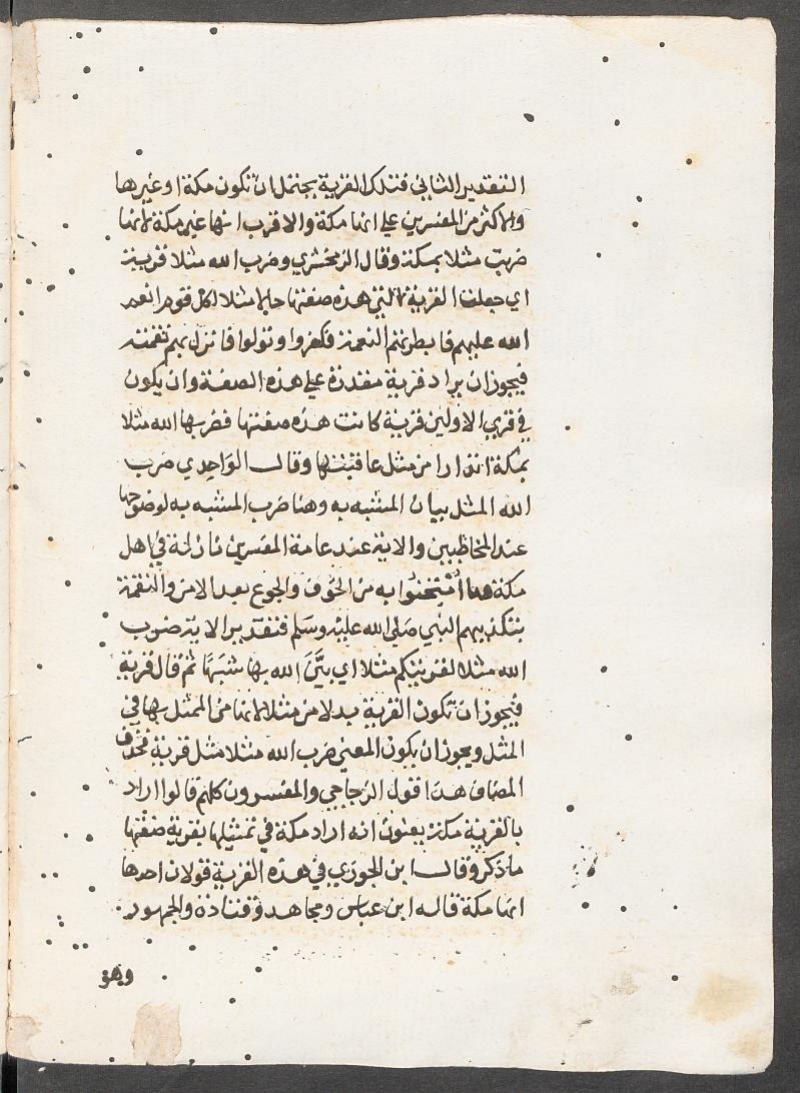 التقدير الثاني فتلك القرية يحتمل ان تكون مكة او غيرها
والاكثر من المفسرين علي انها مكة والاقرب انها غير مكة لانها
ضربت مثلا بمكة وقال الزمخشري وضرب الله مثلا قرية
اي جعلت القرية التي هذه صفتها حالا مثلا لكل قوم انعم
الله عليهم فابطرتهم النعمة فكفروا وتولوا فانزل بهم نقمته
فيجوز ان يراد قرية مقدرة علي هذه الصفة وان يكون
في قري الاولين قرية كانت هذه صفتها فضربها الله مثلا
بمكة انذارا من مثل عاقبتها وقال الواحدي ضرب
الله المثل بيان المشبه به وهنا ضرب المشبه به لوضوحها
عند المخاطبين والاية عند عامة المفسرين نازلة في اهل
مكة وما امتحنوا به من الخوف والجوع بعد الامن والنقمة
بتكذيبهم النبي صلي الله عليه وسلم فتقدير الاية ضرب
الله مثلا لقريتكم مثلا اي بين الله بها شبها ثم قال قرية
فيجوز ان تكون القرية بدلا من مثلا لانها من الممثل بها في
المثل ويجوز ان يكون المعني ضرب الله مثلا مثل قرية فحذف
المضاف هذا قول الزجاجي والمفسرون كلهم قالوا اراد
بالقرية مكة يعنون انه اراد مكة في تمثيلها بقرية صفتها
ما ذكر وقال ابن الجوزي في هذه القرية قولان احدها
انها مكة قاله ابن عباس ومجاهد وقتادة والجمهور
وهو